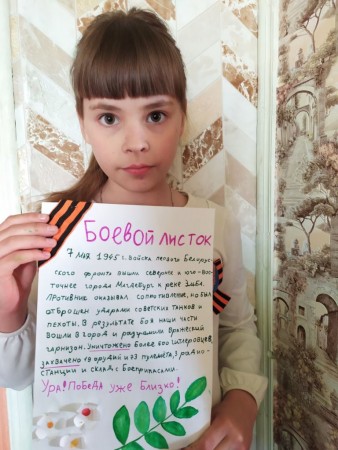 Боевой листок
7 мая 1945 г. войска первого Белорус-
ского фронта вышли севернее и юго-вос-
точнее города Магдебург к реке Эльба.
Противник оказывал сопротивление, но был
отброшен ударами советских танков и
пехоты. В результате боя наши части
вошли в город и разгромили вражеский
гарнизон. Уничтожено более 600 гитлеровцев,
захвачено 19 орудий и 73 пулемёта, 3 радио-
станции и склад с боеприпасами.
Ура! Победа уже близко!